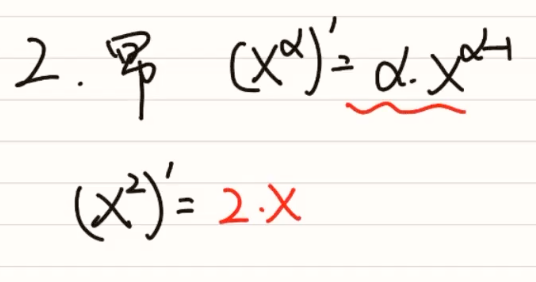 2. 幂 (x^α)' = α·x^(α-1)
(x²)' = 2·x